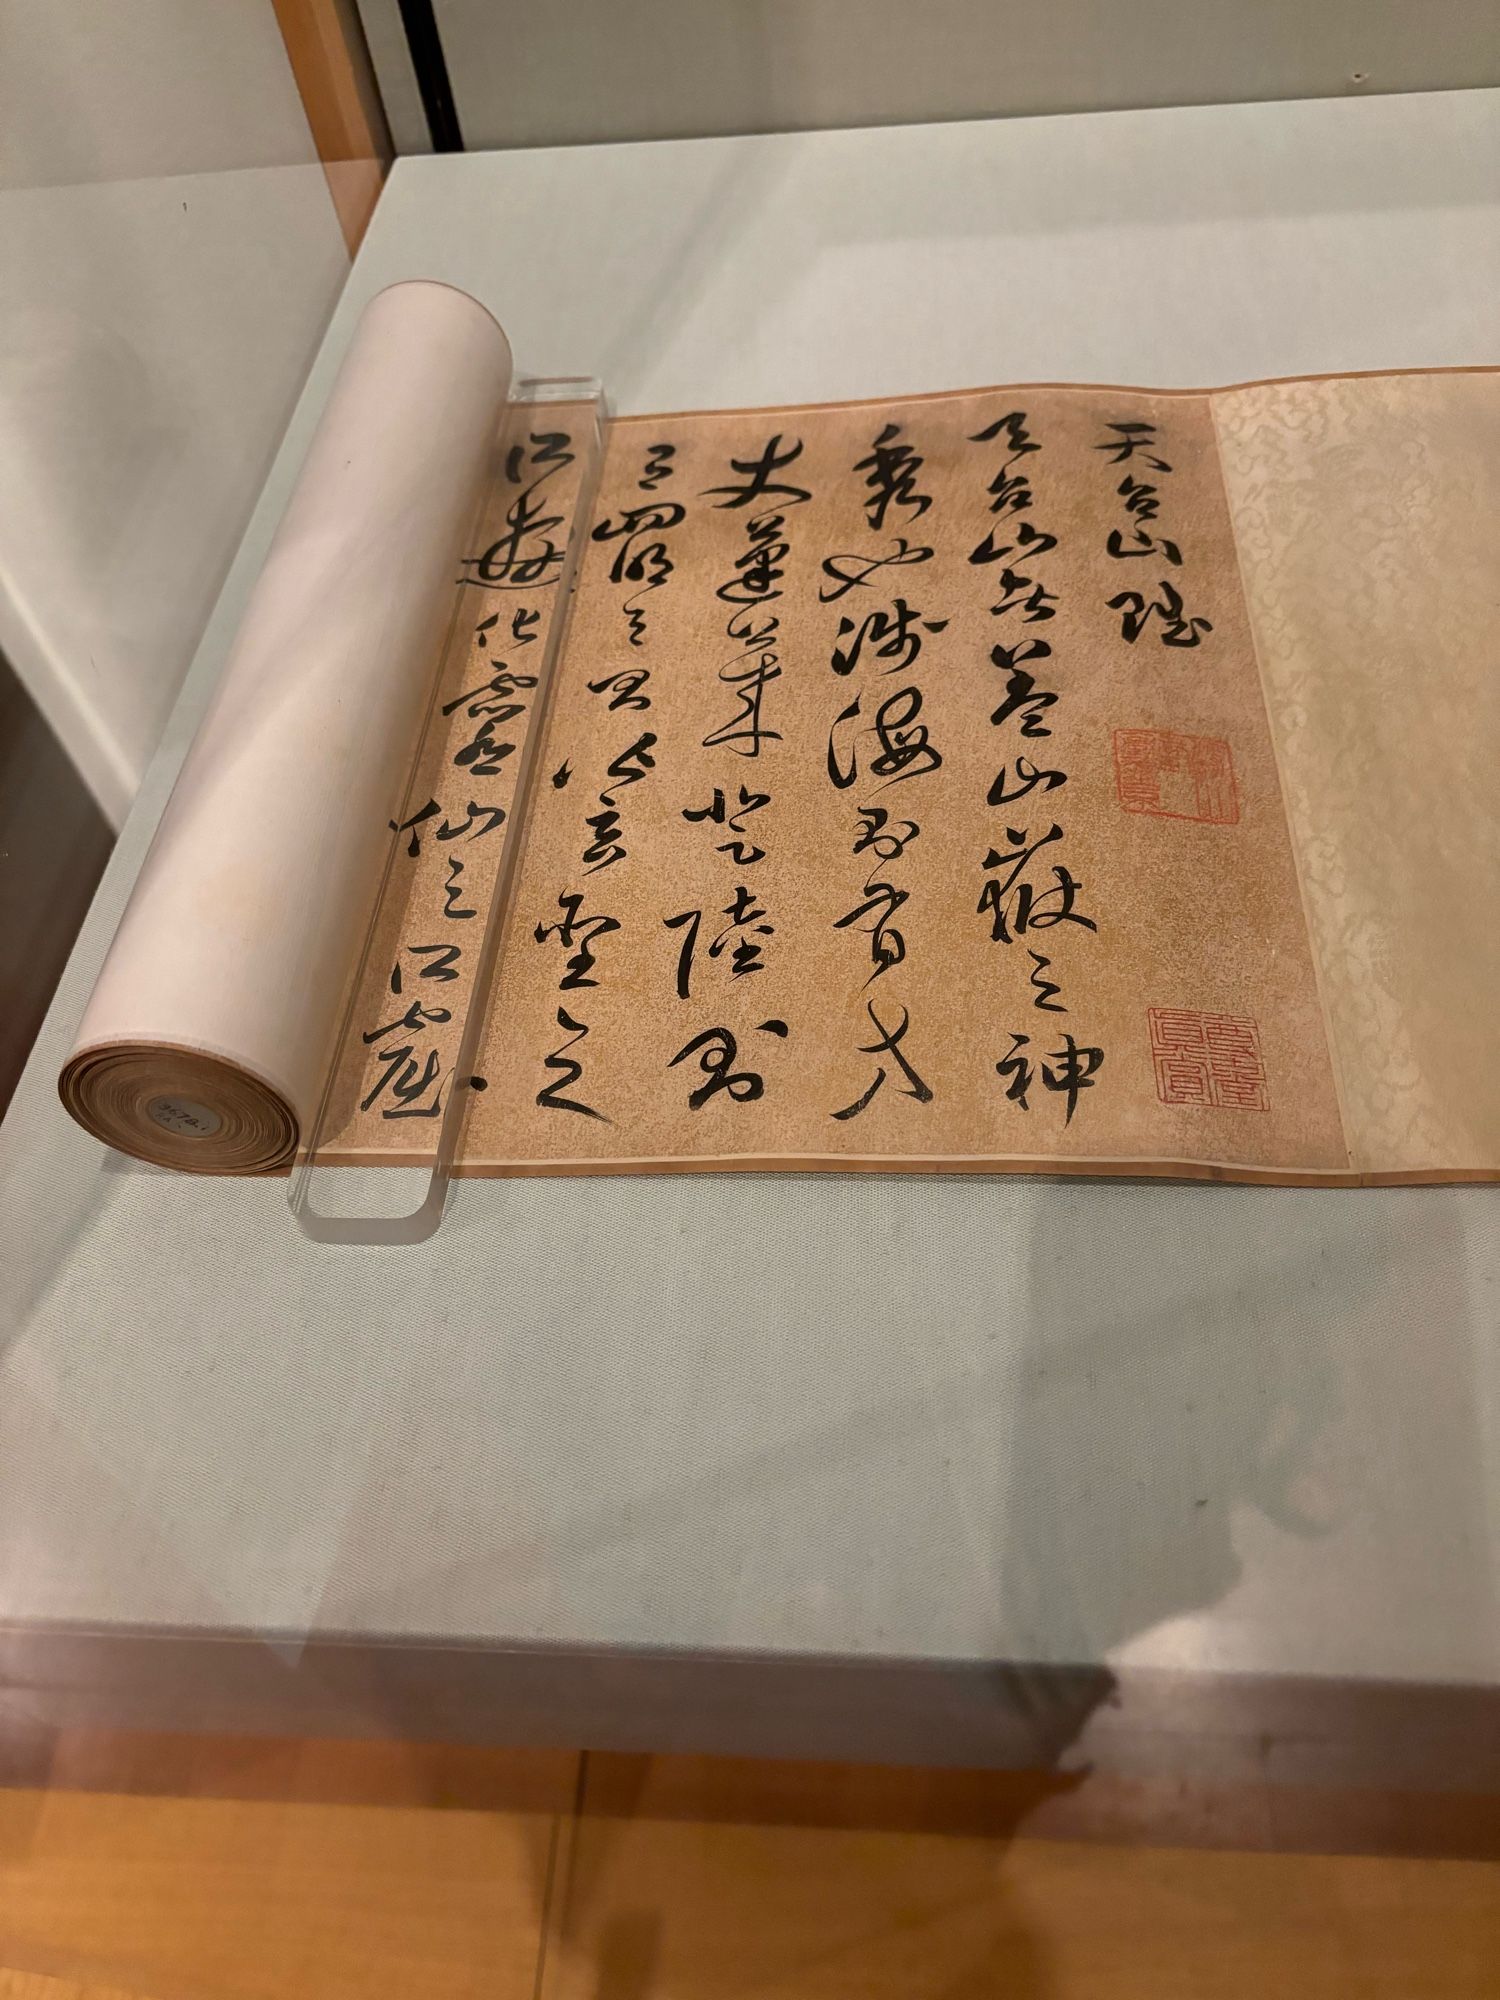 天台山賦
天台山者蓋山嶽之神
秀也涉海則有方
丈蓬萊登陸則
有四明天台皆玄聖之
所遊化靈仙之所窟